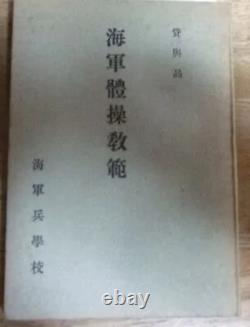 貸與品
海軍體操敎範
海軍兵學校